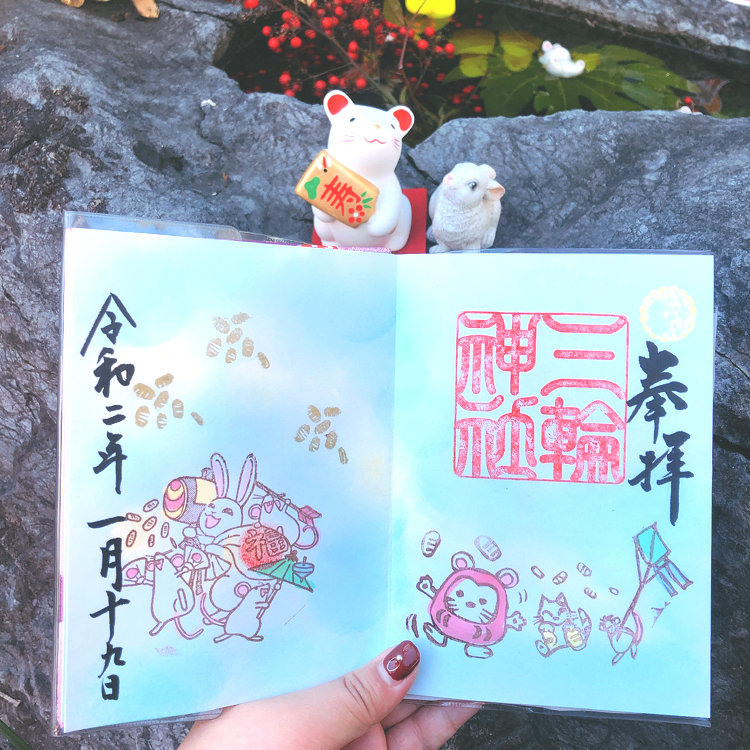 寿
奉拝
三輪
神社
令和二年 一月十九日
福